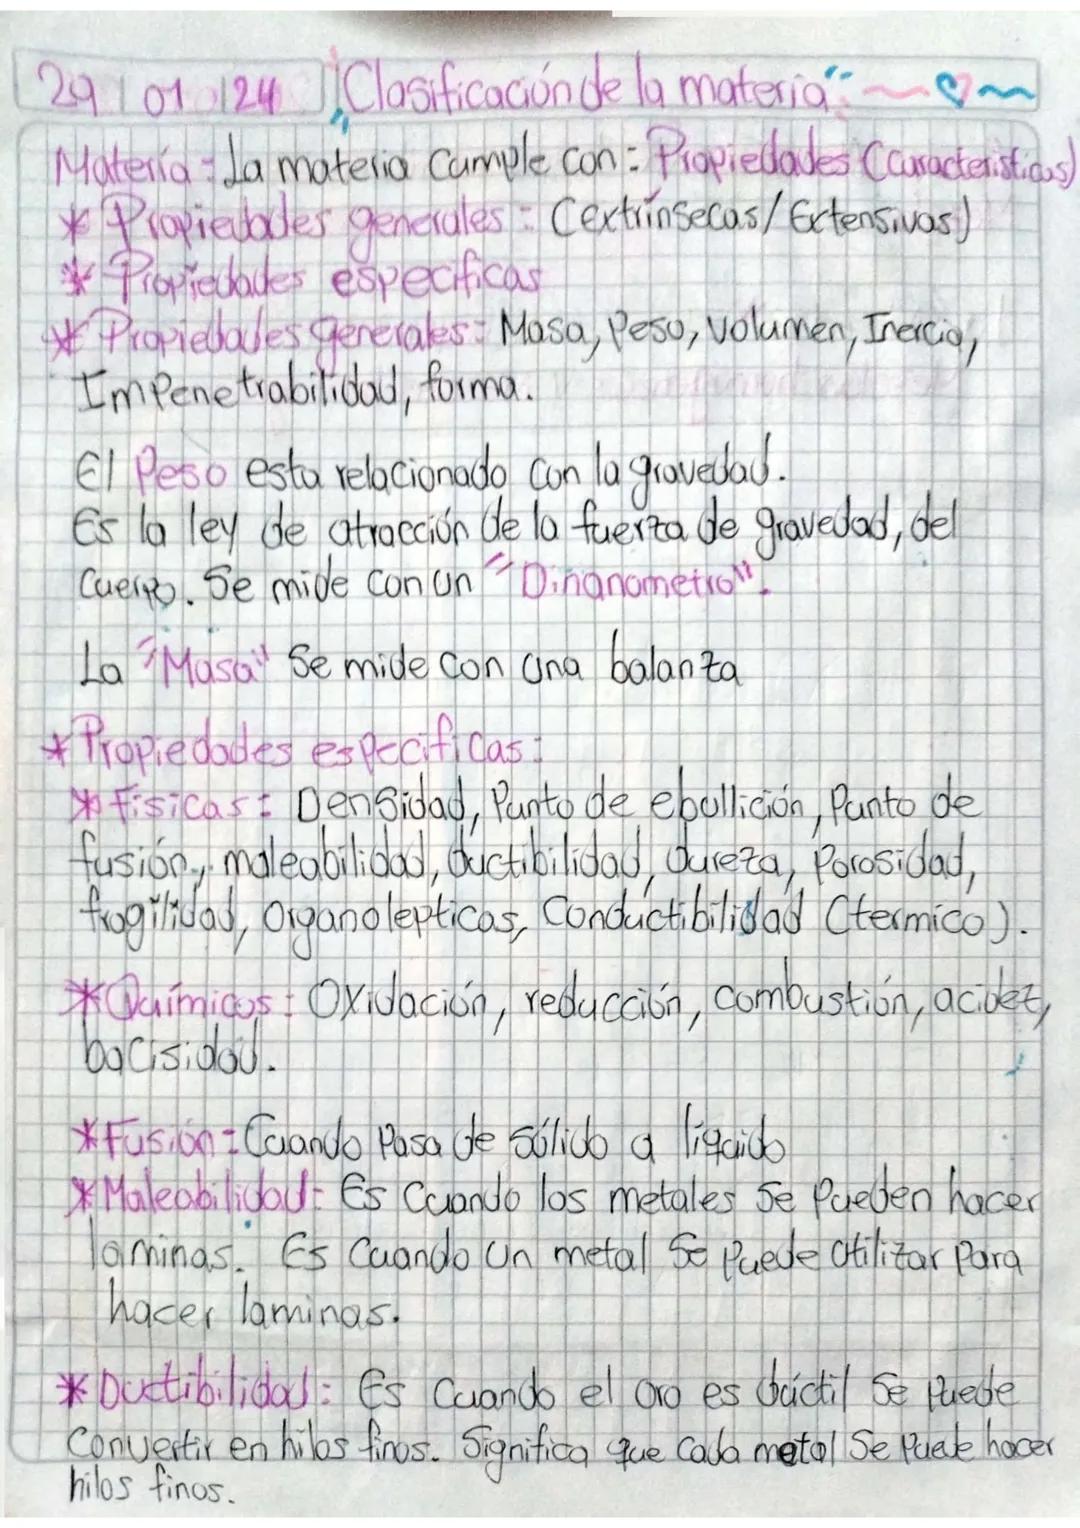 29/01/24 "Clasificación de la materia"
Matería: La materia cumple con: Propiedades (Características)
* Propiedades generales: (extrínsecas/Extensivas)
* Propiedades especificas
* Propiedades generales: Masa, Peso, volumen, Inercia,
Impenetrabilidad, forma.
El Peso esta relacionado con la gravedad.
Es la ley de atracción de la fuerza de gravedad, del
Cuerpo. Se mide con un "Dinanometro".
La "Masa" Se mide con una balanza
* Propiedades especificas:
* físicas: Densidad, Punto de ebullición, Punto de
fusión, maleabilidad, ductibilidad, dureza, Porosidad,
fragilidad, organolepticas, Conductibilidad (termico).
* Químicas: Oxidación, reducción, combustión, acidez,
bacisidad.
* Fusión: Cuando Pasa de sólido a líquido
* Maleabilidad: Es Cuando los metales Se Pueden hacer
laminas. Es Cuando un metal Se Puede utilizar Para
hacer laminas.
* Ductibilidad: Es Cuando el oro es dúctil Se Puede
Convertir en hilos finos. Significa que cada metal Se Puede hacer
hilos finos.